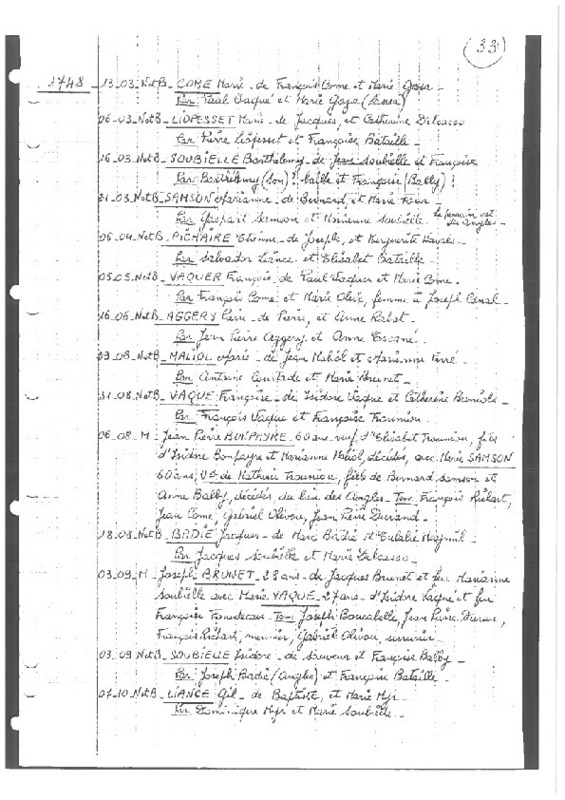 33
1748 13-03-NetB- COME Marie - de François Come et Marie
Par Paul Vaqué et Marie Gaza
06-03-NetB- LIOPESSET Marie - de Jacques, et Catherine Delcasso
Par Pierre Liopesset et Françoise Bataille -
16-03-NetB- SOUBIELLE Barthélemy - de Jean Soubielle et Françoise
Par Barthélemy (son) et Françoise (Balby)
21-03-NetB- SAMSON Marianne - de Bernard, et Marie
Par Gaspart Samson et Marianne Soubielle - le parrain est des Angles -
05-04-NetB- PICHAIRE Etienne - de Joseph, et Marguerite
Par Salvador Liance et Elisabet Bataille -
05-05-NetB- VAQUER François, de Paul Vaquer et Marie Come -
Par François Come et Marie Olive, femme à Joseph Canal -
16-06-NetB- AGGERY Pierre - de Pierre, et Anne
Par Jean Pierre Aggery et Anne
NetB- MALIOL Marie - de Jean Maliol et Marianne
Par Antoine Courtade et Marie Brunet -
31-08-NetB- VAQUE Françoise - de Isidore Vaque et Catherine
Par François Vaque et Françoise
06-08-M- Jean Pierre 60 ans veuf d'Elisabet fils
d'Isidore et Marianne Maliol, décédés, avec Marie SAMSON
60 ans, Vve de Mathieu fille de Bernard Samson et
Anne Balby, décédés du lieu des Angles - Tem. François Richart,
Jean Come, Gabriel Olivou, Jean Pierre Durand -
18-08-NetB- BADIE Jacques - de Marc Badie et Eulalie
Par Jacques Soubielle et Marie Delcasso -
03-09-M- Joseph BRUNET 23 ans - de Jacques Brunet et feu Marianne
Soubielle avec Marie VAQUE 27 ans - d'Isidore Vaque et feu
Françoise Tem. Joseph Boucabelle, Jean Pierre
François Richart, meunier, Gabriel Olivou, serrurier -
03-09 NetB- SOUBIELLE Isidore - de Sauveur et Françoise Balby -
Par Joseph Badie (Angles) et Françoise Bataille -
07-10-NetB- LIANCE Gil - de Baptiste, et Marie Myr -
Par Dominique Myr et Marie Soubielle -